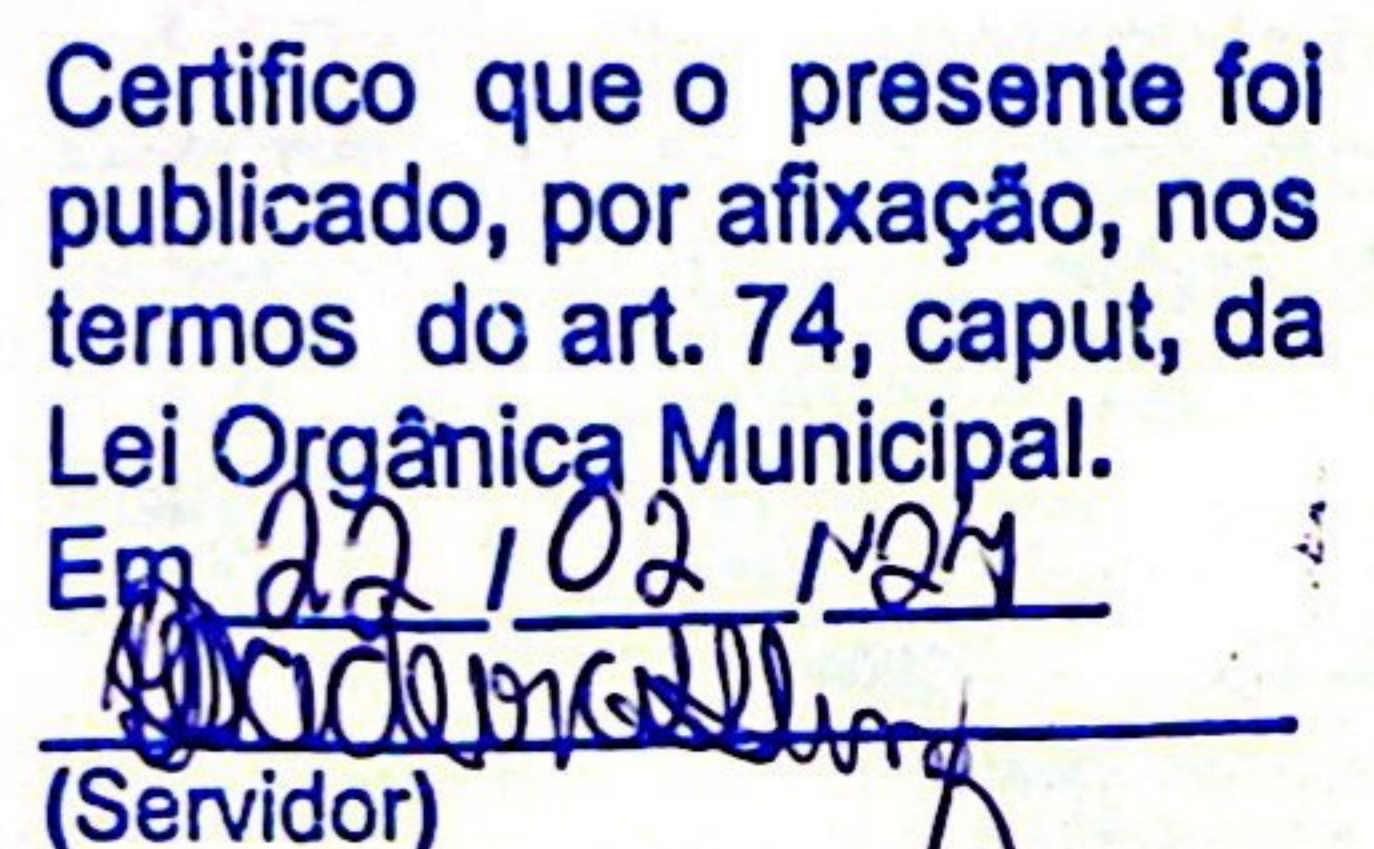 Certifico que o presente foi
publicado, por afixação, nos
termos do art. 74, caput, da
Lei Orgânica Municipal.
Em 22 / 02 / 24
(Servidor)